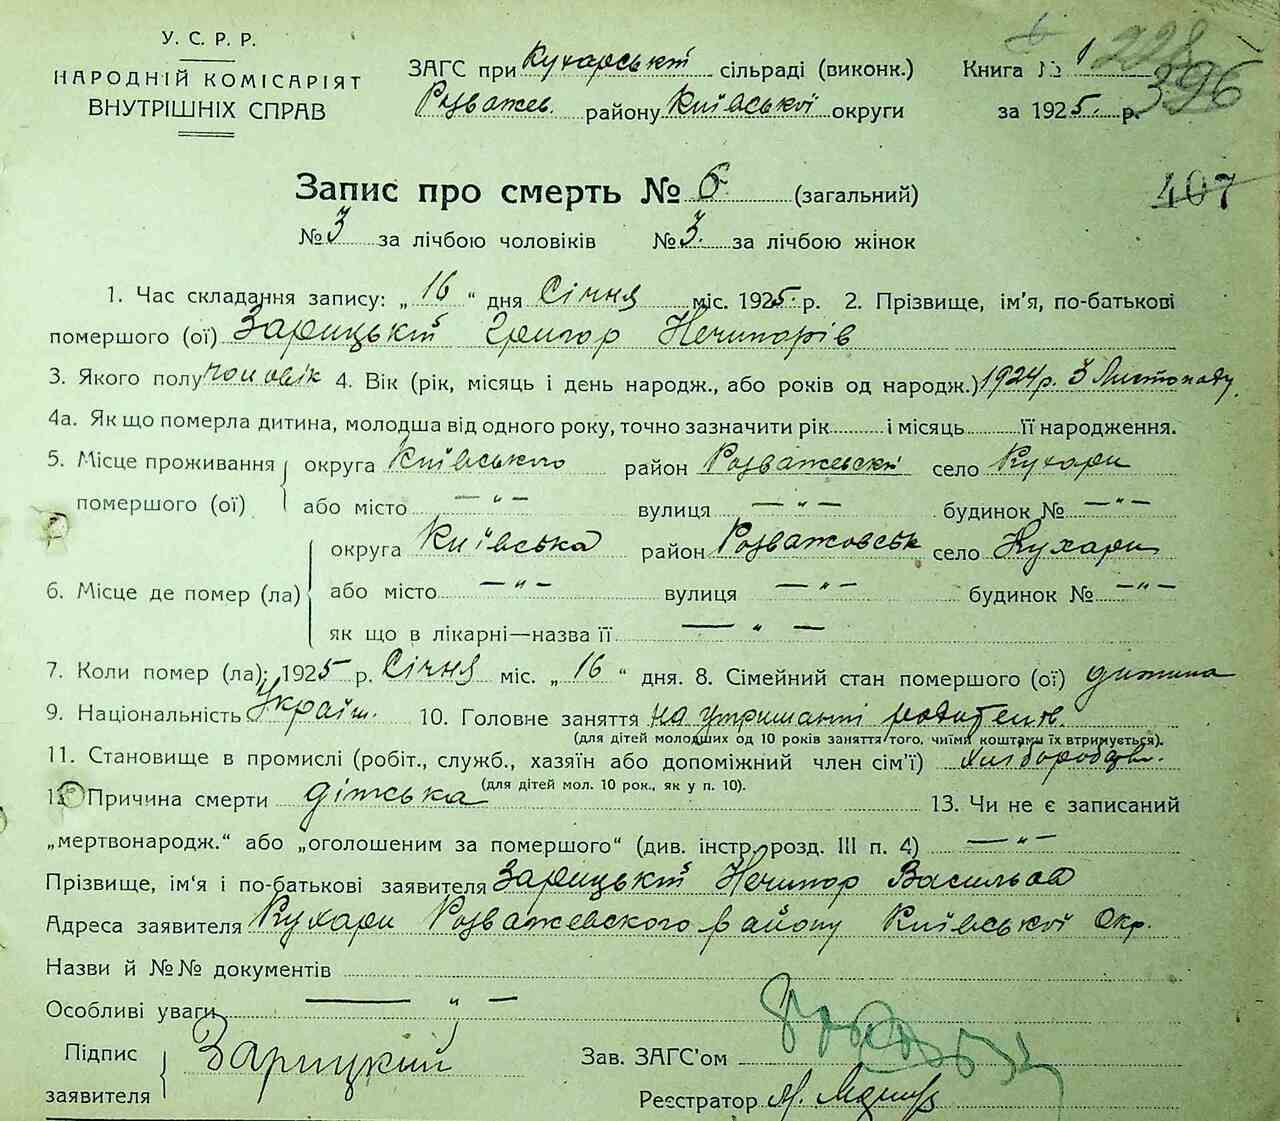 У. С. Р. Р.
НАРОДНІЙ КОМІСАРІЯТ
ВНУТРІШНІХ СПРАВ
ЗАГС при Кухарській сільраді (виконк.)
Розважев. району Київської округи
Книга № 1
за 1925 р.
228
396
407
Запис про смерть № 6 (загальний)
№ 3 за лічбою чоловіків № 3. за лічбою жінок
1. Час складання запису: „16" дня Січня міс. 1925 р. 2. Прізвище, ім'я, по-батькові
помершого (ої) Зарицькій Григор Нечипорів
3. Якого полу чоловік 4. Вік (рік, місяць і день народж., або років од народж.) 1924 р. 3 Листопаду
4а. Як що померла дитина, молодша від одного року, точно зазначити рік і місяць її народження.
5. Місце проживання помершого (ої) округа Київського район Розважевскій село Кухари
або місто — „ — вулиця — „ — будинок № — „ —
6. Місце де помер (ла) округа Київська район Розважовськ село Кухари
або місто — „ — вулиця — „ — будинок № — „ —
як що в лікарні—назва її — „ —
7. Коли помер (ла): 1925 р. Січня міс. „16" дня. 8. Сімейний стан помершого (ої) дитина
9. Національність Україн. 10. Головне заняття на утриманні родителів.
(для дітей молодших од 10 років заняття того, чиїми коштами їх втримується).
11. Становище в промислі (робіт., служб., хазяїн або допоміжний член сім'ї) Хлібороб
(для дітей мол. 10 рок., як у п. 10).
12. Причина смерти дітська 13. Чи не є записаний
„мертвонародж." або „оголошеним за помершого" (див. інстр. розд. III п. 4) — „ —
Прізвище, ім'я і по-батькові заявителя Зарицькій Нечипор Васильов
Адреса заявителя Кухари Розважевского району Київської Окр.
Назви й №№ документів
Особливі уваги — „ —
Підпис заявителя Зарицкий
Зав. ЗАГС'ом
Реєстратор М.